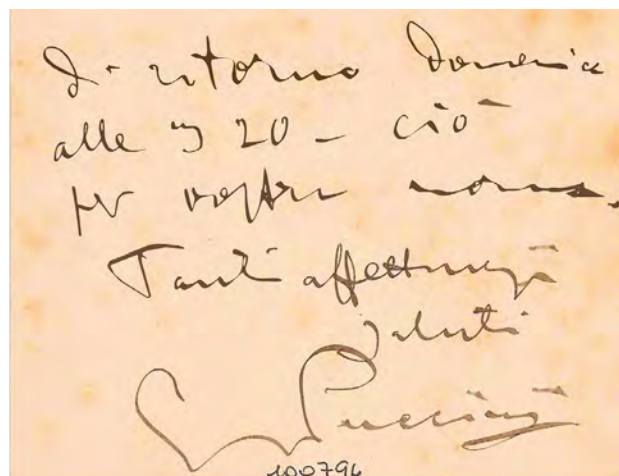 di ritorno Domenica
alle 3 20 - ciò
per vostra norma.
Tanti affettuosi
saluti
G Puccini
100794